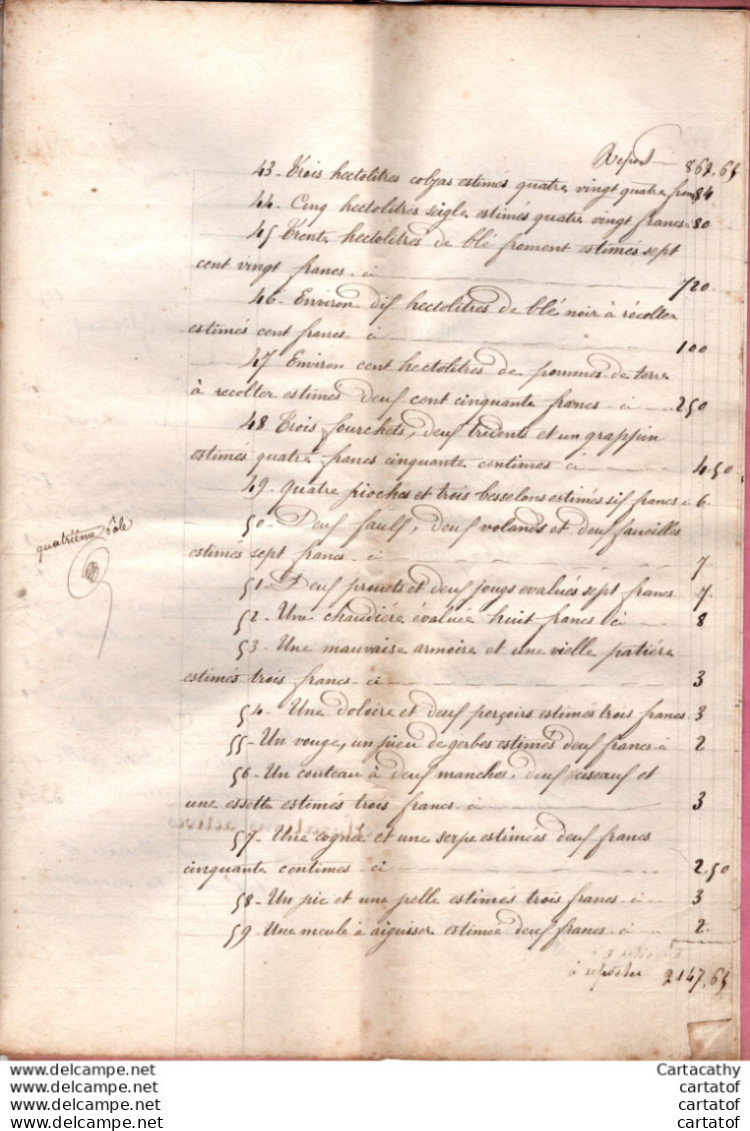 Report 869.65
43 - Trois hectolitres colzas estimés quatre vingt quatre francs 84
44 - Cinq hectolitres seigle estimés quatre vingt francs . 80
45 Trente hectolitres de blé froment estimés sept
cent vingt francs - ci 720.
46 - Environ dix hectolitres de blé noir à récolter
estimés cent francs - ci 100
47 Environ cent hectolitres de pommes de terre
à recolter estimés deux cent cinquante francs - ci 250
48 Trois fourchets, deux tridents et un grappin
estimés quatre francs cinquante centimes ci 4.50
49 - Quatre pioches et trois besselons estimés six francs ci 6.
50 - Deux faulx, deux volands et deux faucilles
estimés sept francs - ci 7
quatrième rôle
51 - Deux et deux jougs evalués sept francs 7.
52 - Une chaudière évaluée huit francs ci 8
53 - Une mauvaise armoire et une vielle patière
estimés trois francs - ci 3
54 - Une doloire et deux perçoirs estimés trois francs. 3
55 - Un vouge, un pieu de gerbes estimés deux francs ci 2
56 - Un couteau à deux manches, deux ciseaux et
une essette estimés trois francs - ci 3
57 - Une cognée et une serpe estimées deux francs
cinquante centimes - ci 2.50
58 - Un pic et une pelle estimés trois francs - ci 3
59 - Une meule à aiguiser estimée deux francs - ci 2.
à reporter 2147.65
www.delcampe.net Cartacathy
www.delcampe.net cartatof
www.delcampe.net cartatof
www.delcampe.net cartatof